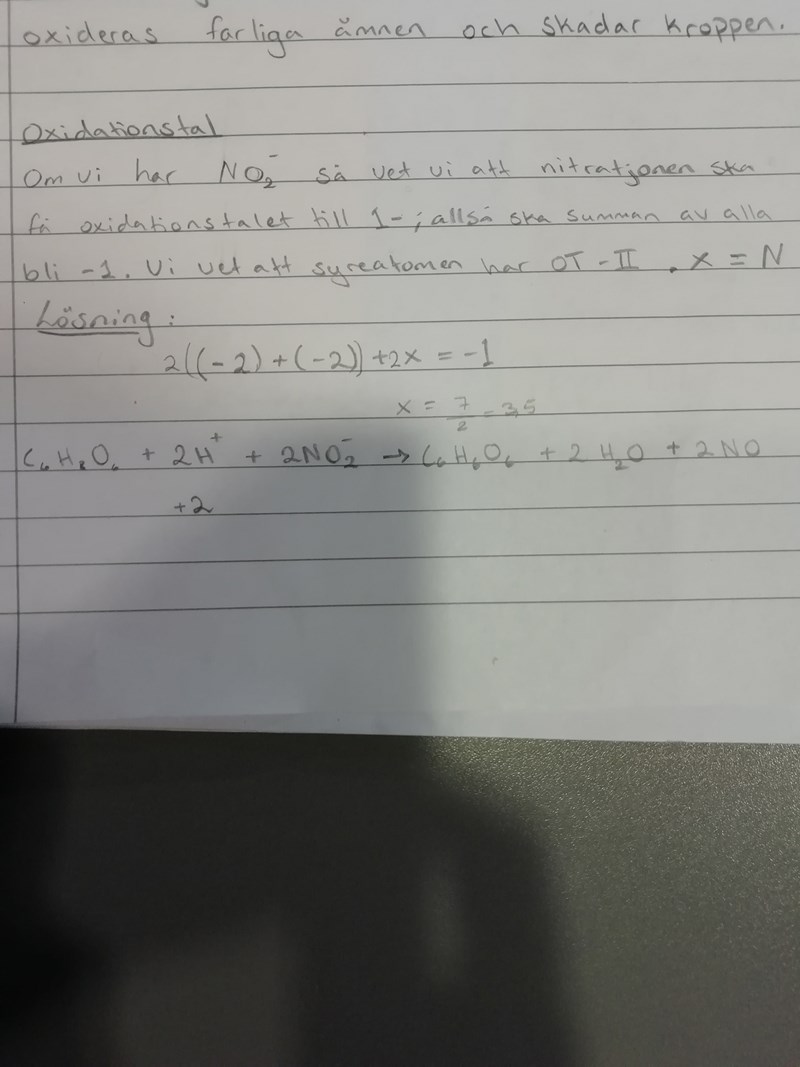 oxideras farliga ämnen och skadar kroppen.
Oxidationstal
Om vi har NO₂⁻ så vet vi att nitratjonen ska
få oxidationstalet till 1-; allså ska summan av alla
bli -1. Vi vet att syreatomen har OT -II . x = N
Lösning:
2((-2) + (-2)) + 2x = -1
x = 7/2 = 3,5
C₆H₈O₆ + 2H⁺ + 2NO₂⁻ → C₆H₆O₆ + 2 H₂O + 2 NO
+2